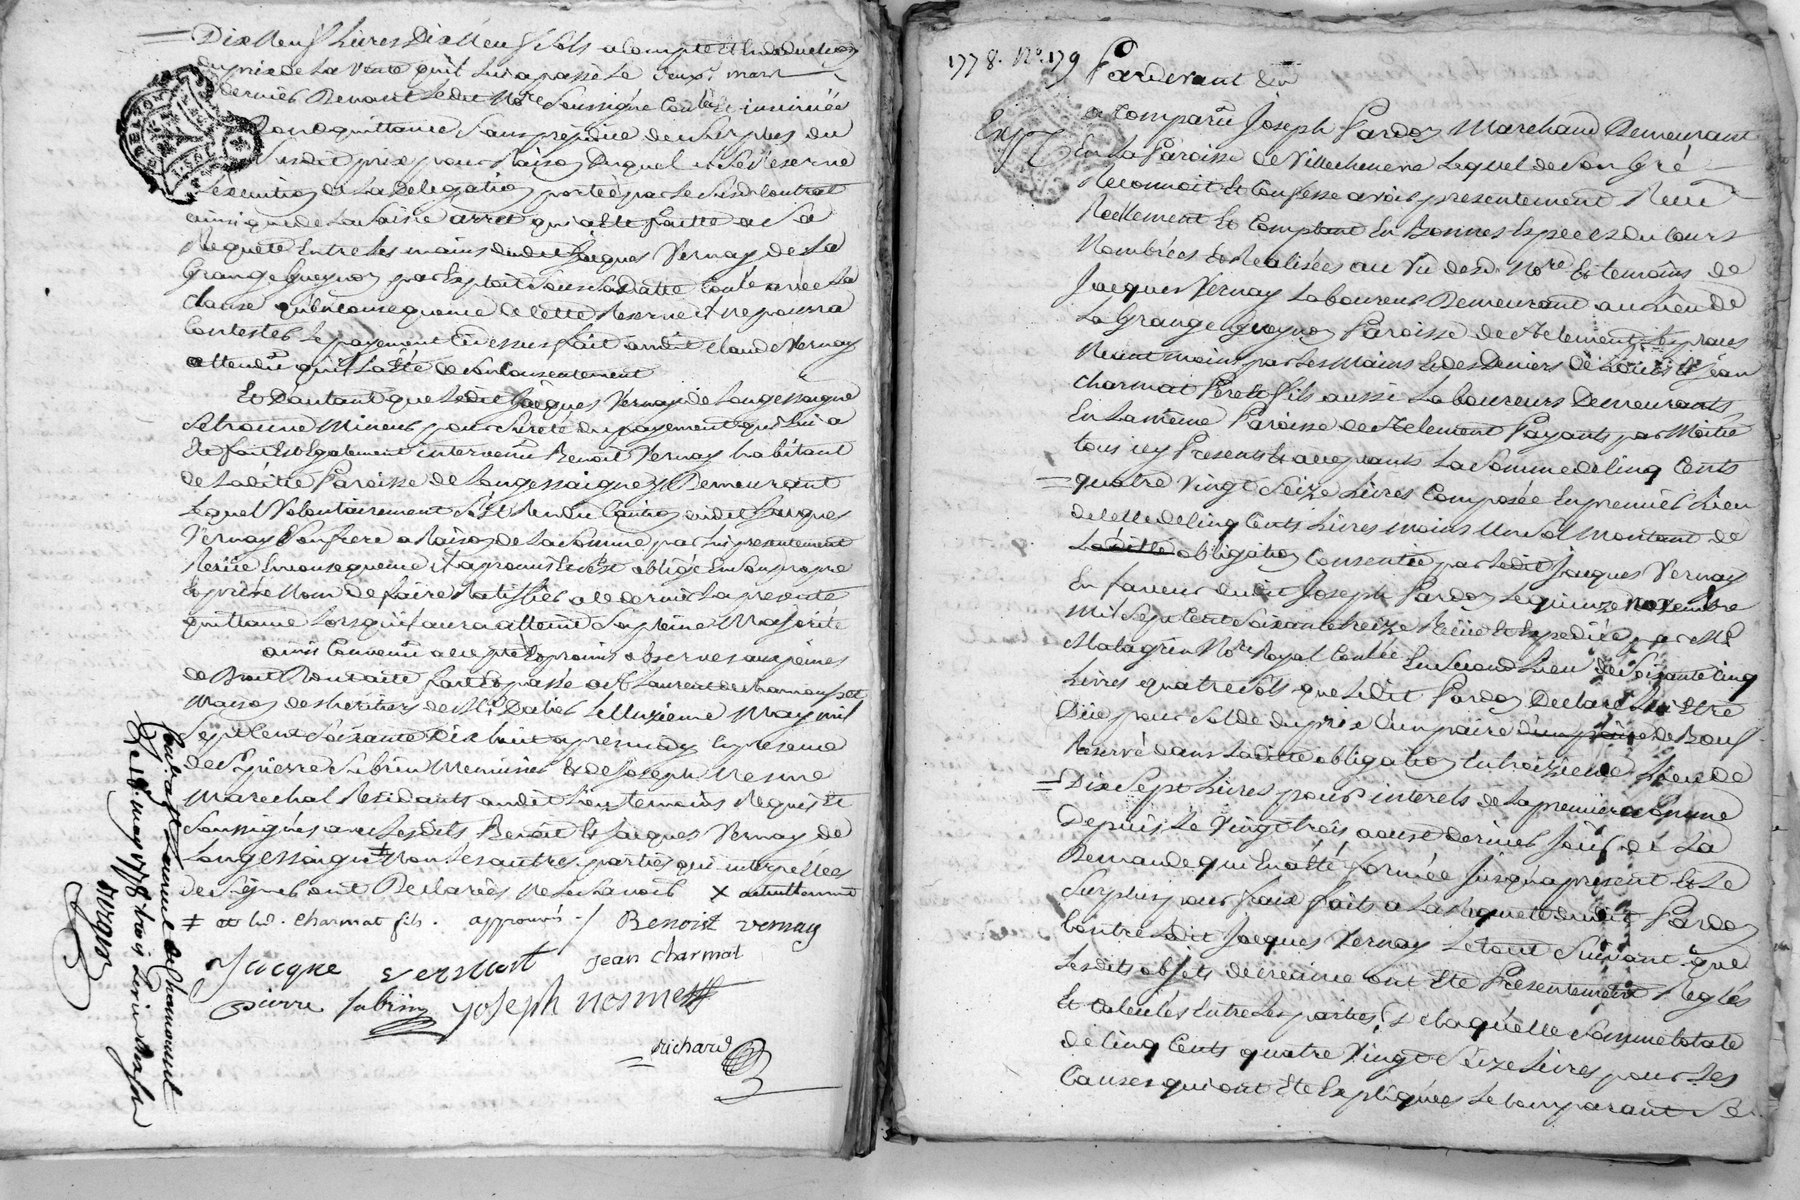 Dix Neuf Livres Dix Neuf sols a Compte et en deduction
du prix de La Vente qu'il Lui a passé Le deux mars
dernier Devant Ledit Nore Soussigné Conlée et insinuée
Dont quittance Sans préjudice du Surplus du
Susdit prix pour Raison Duquel il Se Reserve
L'execution de La Delegation portée par Le Susd. Contrat
ainsi que de La Saisie arret qui a été faitte a Sa
Requete Entre Les mains dudit Jacques Vernay de La
Grange Gueynon par Exploit Sous Sa datte Conlé avec La
Clause qu'en Consequence de Cette Reserve il ne pourra
Contester Le payement Cy dessus fait audit Claude Vernay
attendu qu'il La été de Son Consentement
Et D'autant que Ledit Jacques Vernay de Longessaigne
Se trouve Mineur pour Sureté du payement qui Lui a
été fait Est Egalement intervenu Benoit Vernay habitant
de Laditte Paroisse de Longessaigne y Demeurant
Lequel Volontairement S'est Rendu Caution dudit Jacques
Vernay Son frere a Raison de La Somme par Lui presentement
Reçüe En consequence il a promis et s'est obligé En Son propre
et privé Nom de faire Ratiffier a Ce dernier La presente
quittance Lors qu'il aura atteint Sa pleine Majorité
ainsi Convenu accepté et promis observer aux peines
de Droit Dont acte fait et passé a St Laurent de Chamousset
Maison des heritiers de Mr Dalier Le Unzieme May mil
Sept Cent Soixante Dix huit apres midy En presence
de Pierre Subrin Menuisier & de Joseph Nesme
Marechal Residants audit Lieu temoins Requis et
Soussignés avec Lesdits Benoit Et Jacques Vernay de
Longessaigne ‡ Non Les autres parties qui interpellées
de Signer ont Declarées Ne Le Savoir
‡ et led. Charmat fils. approuvé ·/ Benoist vernay
Jacque vernat Jean Charmat
pierre subrin joseph nesme
Richard
Conlé. a St Laurent de Chamousset
Le 18. may 1778. trois Livres
1778. No. 179 Pardevant &a
a Comparü Joseph Pardon Marchand Demeurant
Exp
En La Paroisse de Villecheneve Lequel de Son Gré
Reconnoit Et Confesse avoir presentement Receu
Reellement Et Comptant En Bonnes Especes du Cours
Nombrées Et Realisées au Vü desd. Nore Et temoins de
Jacques Vernay Laboureur Demeurant au Lieu de
La Grange Gueynon Paroisse de St Clement Les places
Neant moins par Les Mains Et des Deniers de Louis Et Jean
Charmat Pere Et fils aussi Laboureurs Demeurants
En La même Paroisse de St Clement Payants par Moitié
tous icy Presents & acceptants La Somme de Cinq Cents
quatre Vingt Seize Livres Composée En premier Lieu
de Celle de Cinq Cents Livres moins Un Sol Montant de
Laditte obligation Consentie par Ledit Jacques Vernay
En faveur dudit Joseph Pardon Le quinze novembre
Mil Sept Cent Soixante treize Reçüe Et Expediée par Me
Malagrin Nore Royal Conlée En Second Lieu de Soixante Cinq
Livres quatre Sols que Ledit Pardon Declare Lui Etre
Düe pour Solde du prix d'un paire d'un paire de Bœuf
Reservé dans Laditte obligation En troisieme Lieu de
Dix Sept Livres pour interets de La premiere Somme
Depuis Le Vingt trois aoust dernier Jour de La
Demande qui En a été formée Jusqu'a present Et Le
Surplus pour fraix faits a La Requete dudit Pardon
Contre Ledit Jacques Vernay Le tout Suivant que
Lesdits objets de creance ont Eté Presentement Reglés
Et Calculés Entre Les parties, De Laquelle Somme totale
de Cinq Cents quatre Vingt Seize Livres pour Les
Causes qui ont Eté Expliquées Le Comparant Se